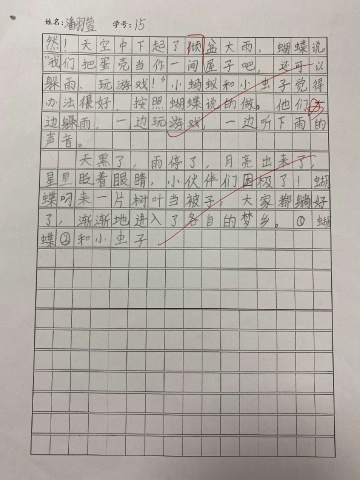 姓名:潘羽萱 学号:15
然！天空中下起了倾盆大雨，蝴蝶说
“我们把蛋壳当作一间屋子吧，还可以
躲雨、玩游戏！”小蚂蚁和小虫子觉得
办法很好，按照蝴蝶说的做。他们
边躲雨，一边玩游戏，一边听下雨的
声音。
天黑了，雨停了，月亮出来了，
星星眨着眼睛，小伙伴们困极了！蝴
蝶叼来一片树叶当被子，大家都躺好
了，渐渐地进入了各自的梦乡。①蝴
蝶②和小虫子